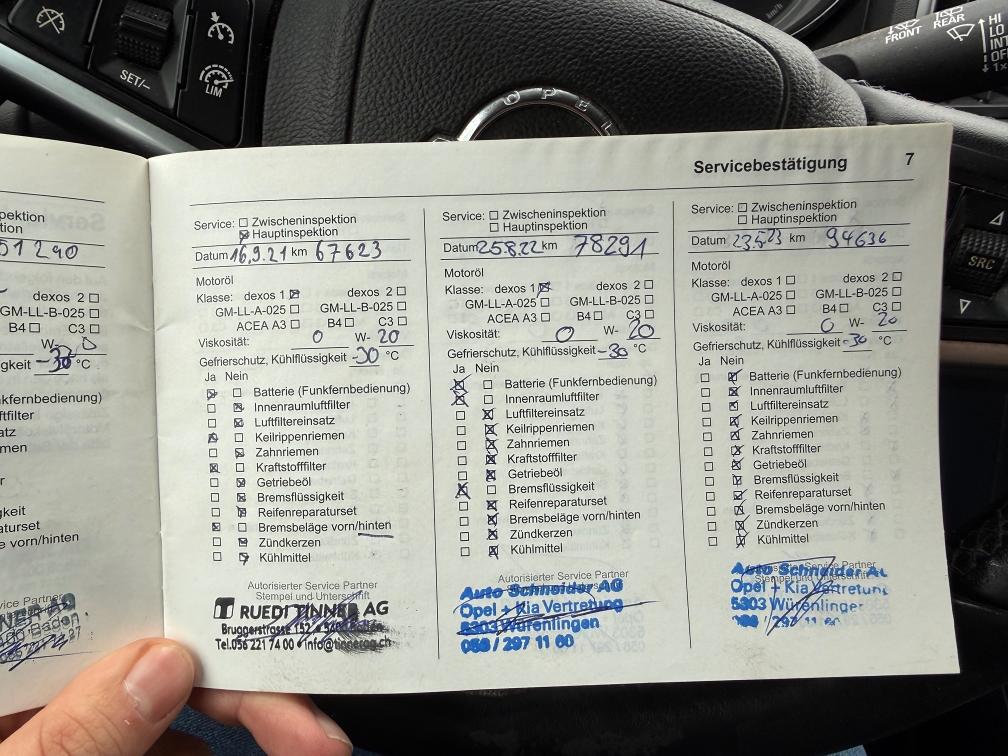 SET/–
LIM
OPEL
FRONT
REAR
HI
LO
INT
OFF
1x
SRC
Servicebestätigung 7
pektion
tion
51290
dexos 2 ☐
GM-LL-B-025 ☐
B4 ☐ C3 ☐
W-
gkeit -30 °C
nkfernbedienung)
tfilter
atz
men
r
gkeit
aturset
e vorn/hinten
Service: ☐ Zwischeninspektion
☒ Hauptinspektion
Datum 16.9.21 km 67623
Motoröl
Klasse: dexos 1 ☒ dexos 2 ☐
GM-LL-A-025 ☐ GM-LL-B-025 ☐
ACEA A3 ☐ B4 ☐ C3 ☐
Viskosität: 0 W- 20
Gefrierschutz, Kühlflüssigkeit -30 °C
Ja Nein
☒ ☐ Batterie (Funkfernbedienung)
☐ ☒ Innenraumluftfilter
☐ ☒ Luftfiltereinsatz
☒ ☐ Keilrippenriemen
☐ ☒ Zahnriemen
☒ ☐ Kraftstofffilter
☐ ☒ Getriebeöl
☐ ☒ Bremsflüssigkeit
☐ ☒ Reifenreparaturset
☒ ☐ Bremsbeläge vorn/hinten
☐ ☒ Zündkerzen
☐ ☒ Kühlmittel
Autorisierter Service Partner
Stempel und Unterschrift
RUEDI TINNER AG
Bruggerstrasse 152
Tel.056 221 74 00 • info@tinnerag.ch
Service: ☐ Zwischeninspektion
☐ Hauptinspektion
Datum 25.8.22 km 78291
Motoröl
Klasse: dexos 1 ☒ dexos 2 ☐
GM-LL-A-025 ☐ GM-LL-B-025 ☐
ACEA A3 ☐ B4 ☐ C3 ☐
Viskosität: 0 W- 20
Gefrierschutz, Kühlflüssigkeit -30 °C
Ja Nein
☒ ☐ Batterie (Funkfernbedienung)
☒ ☐ Innenraumluftfilter
☐ ☒ Luftfiltereinsatz
☐ ☒ Keilrippenriemen
☐ ☒ Zahnriemen
☐ ☒ Kraftstofffilter
☐ ☒ Getriebeöl
☒ ☐ Bremsflüssigkeit
☐ ☒ Reifenreparaturset
☐ ☒ Bremsbeläge vorn/hinten
☐ ☒ Zündkerzen
☐ ☒ Kühlmittel
Autorisierter Service Partner
Auto Schneider AG
Opel + Kia Vertretung
5303 Würenlingen
056 / 297 11 60
Service: ☐ Zwischeninspektion
☐ Hauptinspektion
Datum 23.5.23 km 94636
Motoröl
Klasse: dexos 1 ☐ dexos 2 ☐
GM-LL-A-025 ☐ GM-LL-B-025 ☐
ACEA A3 ☐ B4 ☐ C3 ☐
Viskosität: 0 W- 20
Gefrierschutz, Kühlflüssigkeit -30 °C
Ja Nein
☐ ☒ Batterie (Funkfernbedienung)
☐ ☒ Innenraumluftfilter
☐ ☒ Luftfiltereinsatz
☐ ☒ Keilrippenriemen
☐ ☒ Zahnriemen
☐ ☒ Kraftstofffilter
☐ ☒ Getriebeöl
☐ ☒ Bremsflüssigkeit
☐ ☒ Reifenreparaturset
☐ ☒ Bremsbeläge vorn/hinten
☐ ☒ Zündkerzen
☐ ☒ Kühlmittel
Auto Schneider
Stempel und Unterschrift
Opel + Kia Vertretung
5303 Würenlinger